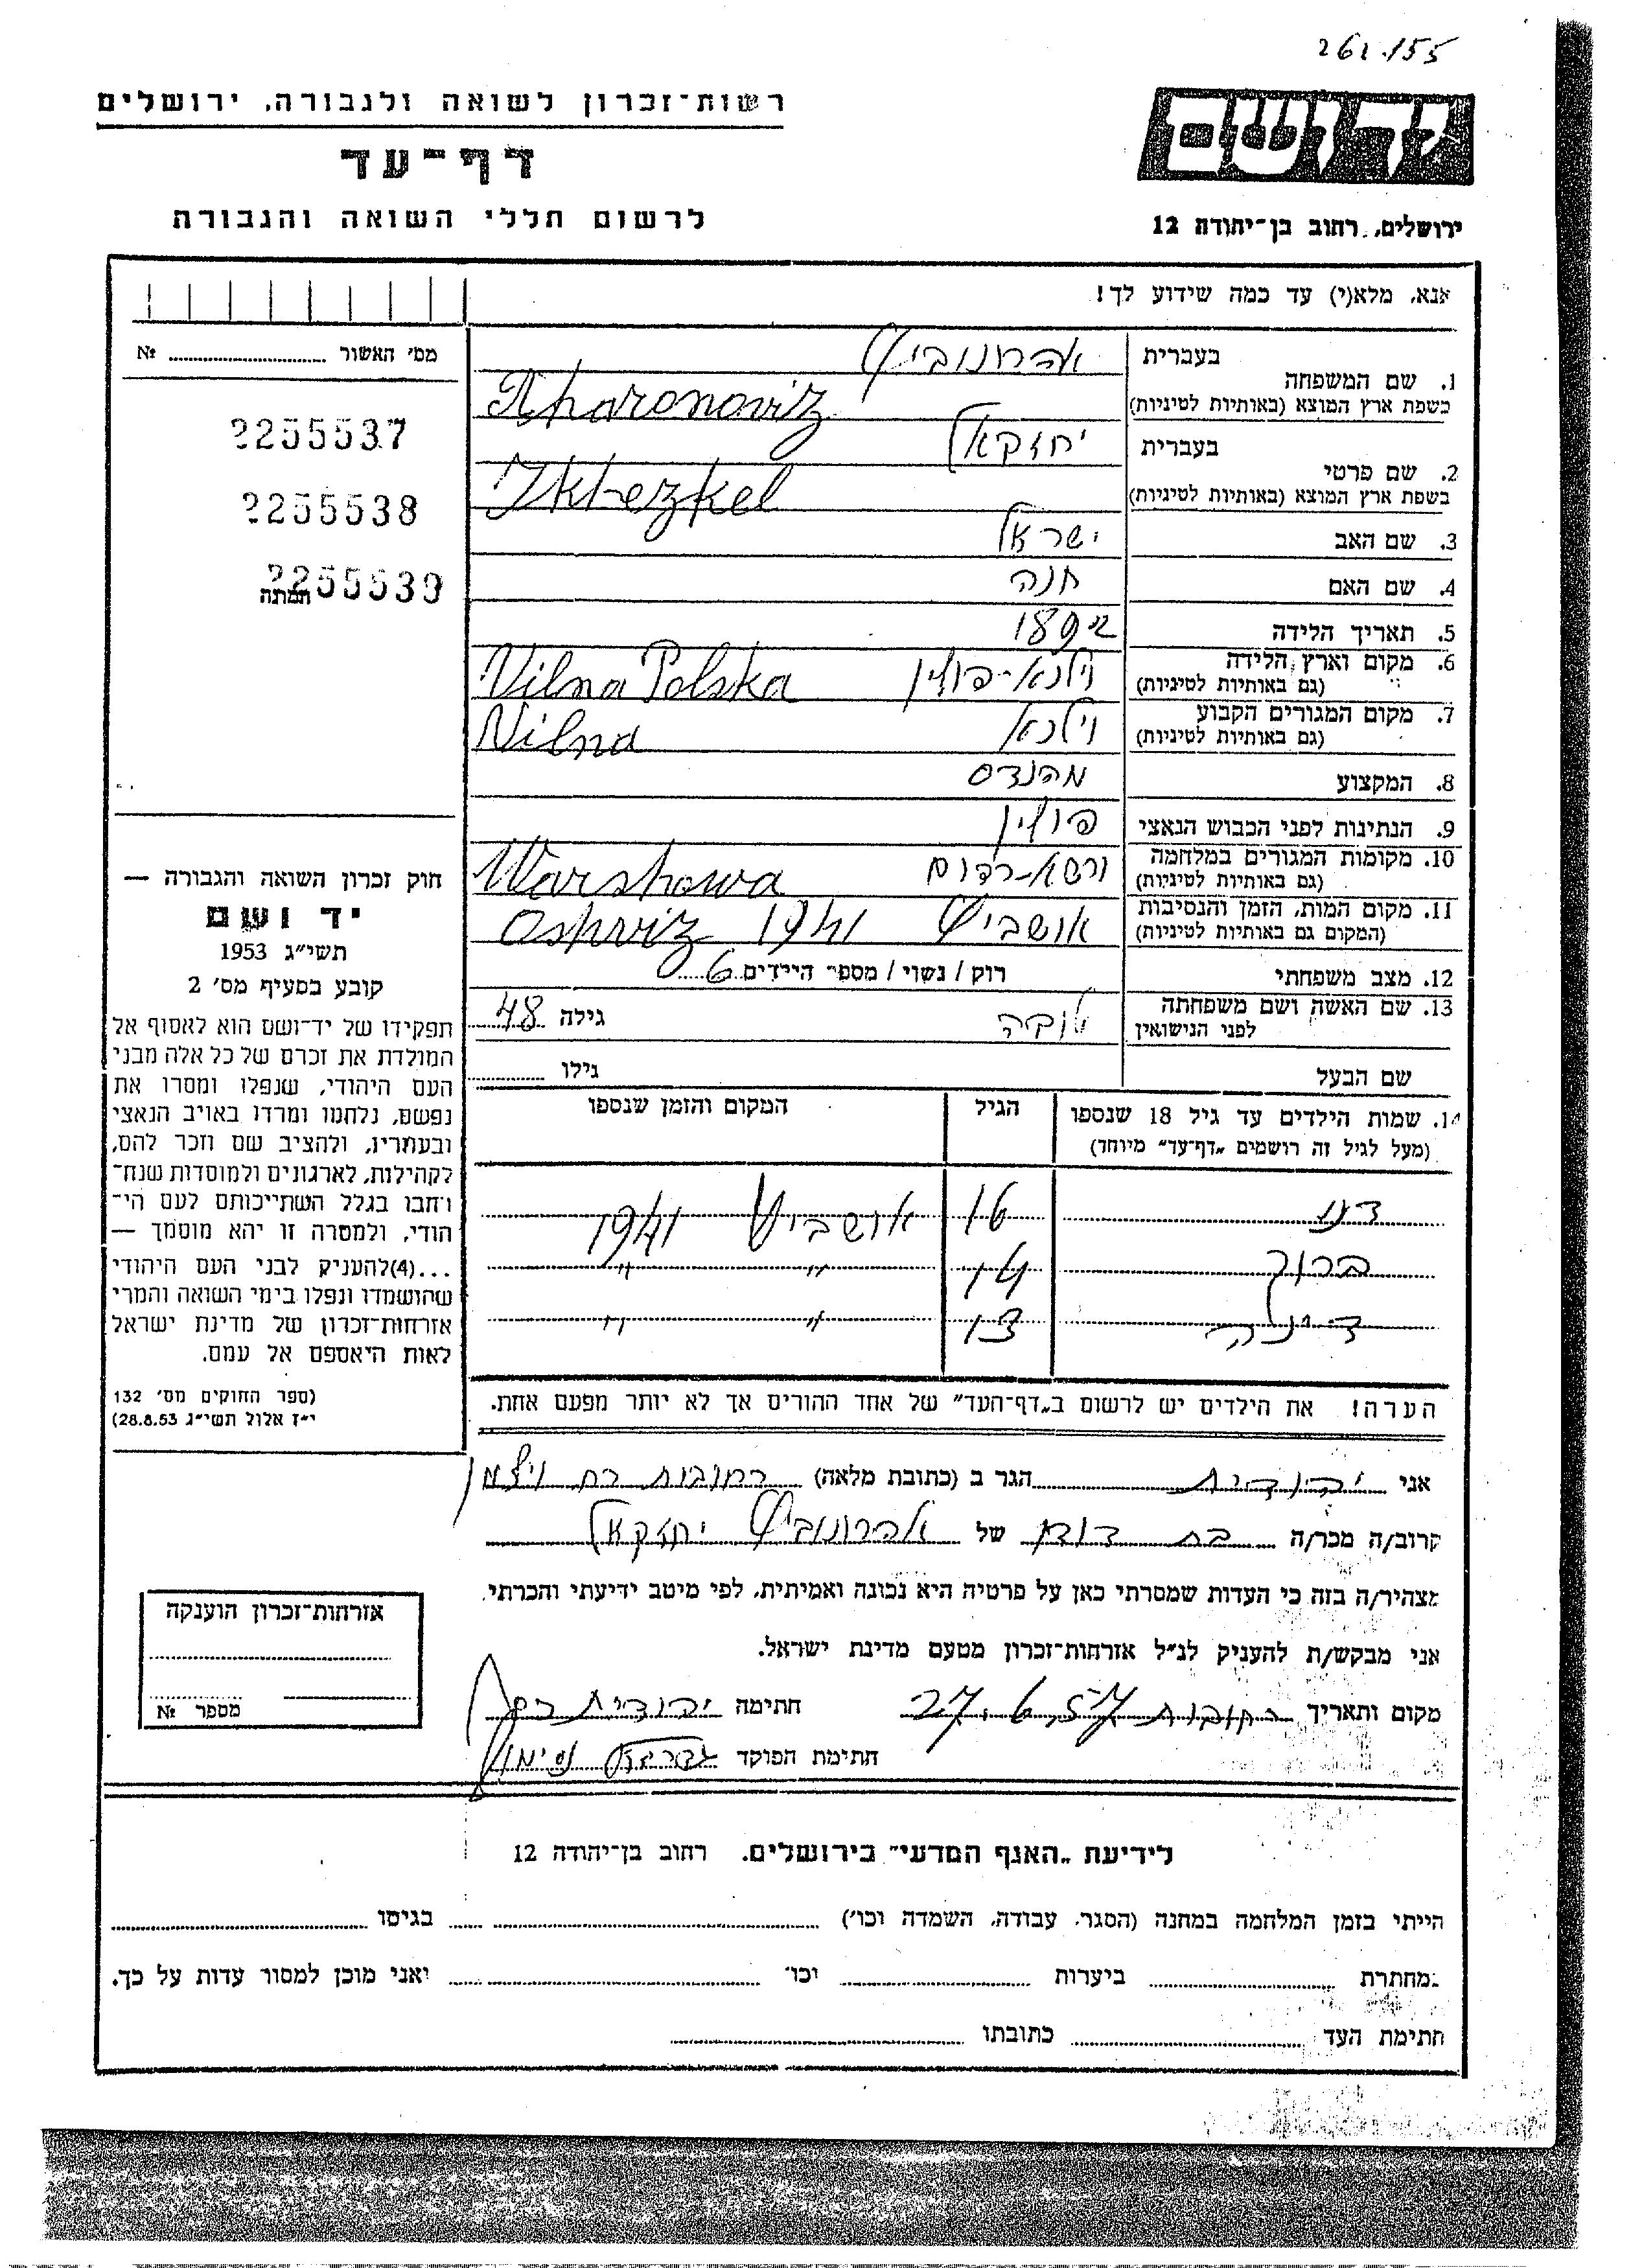 261.155
רשות־זכרון לשואה ולגבורה, ירושלים
דף־עד
לרשום חללי השואה והגבורה
יד ושם
ירושלים, רחוב בן־יהודה 12
אנא, מלא(י) עד כמה שידוע לך!
מס׳ האשור № 
2255537
2255538
2255539
חמתה
1. שם המשפחה בעברית אהרונוביץ
בשפת ארץ המוצא (באותיות לטיניות) Aharonoviz
2. שם פרטי בעברית יחזקאל
בשפת ארץ המוצא (באותיות לטיניות) Ikhezkel
3. שם האב ישראל
4. שם האם חנה
5. תאריך הלידה 1892
6. מקום וארץ הלידה (גם באותיות לטיניות) וילנא־פולין Vilna Polska
7. מקום המגורים הקבוע (גם באותיות לטיניות) וילנא Vilna
8. המקצוע מהנדס
9. הנתינות לפני הכבוש הנאצי פולין
10. מקומות המגורים במלחמה (גם באותיות לטיניות) Warshawa
11. מקום המות, הזמן והנסיבות (המקום גם באותיות לטיניות) אושביץ 1941 Oshviz
12. מצב משפחתי רוק / נשוי / מספר הילדים 6
13. שם האשה ושם משפחתה לפני הנישואין גילה 48
שם הבעל גילו
14. שמות הילדים עד גיל 18 שנספו הגיל המקום והזמן שנספו
(מעל לגיל זה רושמים „דף־עד״ מיוחד)
16 אושביץ 1941
ברוך 14 " "
13 " "
הערה! את הילדים יש לרשום ב„דף־העד״ של אחד ההורים אך לא יותר מפעם אחת.
חוק זכרון השואה והגבורה —
יד ושם
תשי״ג 1953
קובע בסעיף מס׳ 2
תפקידו של יד־ושם הוא לאסוף אל
המולדת את זכרם של כל אלה מבני
העם היהודי, שנפלו ומסרו את
נפשם, נלחמו ומרדו באויב הנאצי
ובעוזריו, ולהציב שם וזכר להם,
לקהילות, לארגונים ולמוסדות שנח־
רבו בגלל השתייכותם לעם הי־
הודי, ולמטרה זו יהא מוסמך —
...(4)להעניק לבני העם היהודי
שהושמדו ונפלו בימי השואה והמרי
אזרחות־זכרון של מדינת ישראל
לאות היאספם אל עמם.
(ספר החוקים מס׳ 132
י״ז אלול תשי״ג 28.8.53)
אני יהודית הגר ב (כתובת מלאה) רחובות
קרוב/ה מכר/ה בת דודו של אהרונוביץ יחזקאל
מצהיר/ה בזה כי העדות שמסרתי כאן על פרטיה היא נכונה ואמיתית, לפי מיטב ידיעתי והכרתי.
אני מבקש/ת להעניק לנ״ל אזרחות־זכרון מטעם מדינת ישראל.
מקום ותאריך רחובות 27.6.57 חתימה יהודית
חתימת הפוקד
אזרחות־זכרון הוענקה
מספר №
לידיעת „האגף המדעי״ בירושלים, רחוב בן־יהודה 12
הייתי בזמן המלחמה במחנה (הסגר, עבודה, השמדה וכו׳) בגיטו
במחתרת ביערות וכו׳ ואני מוכן למסור עדות על כך.
חתימת העד כתובתו